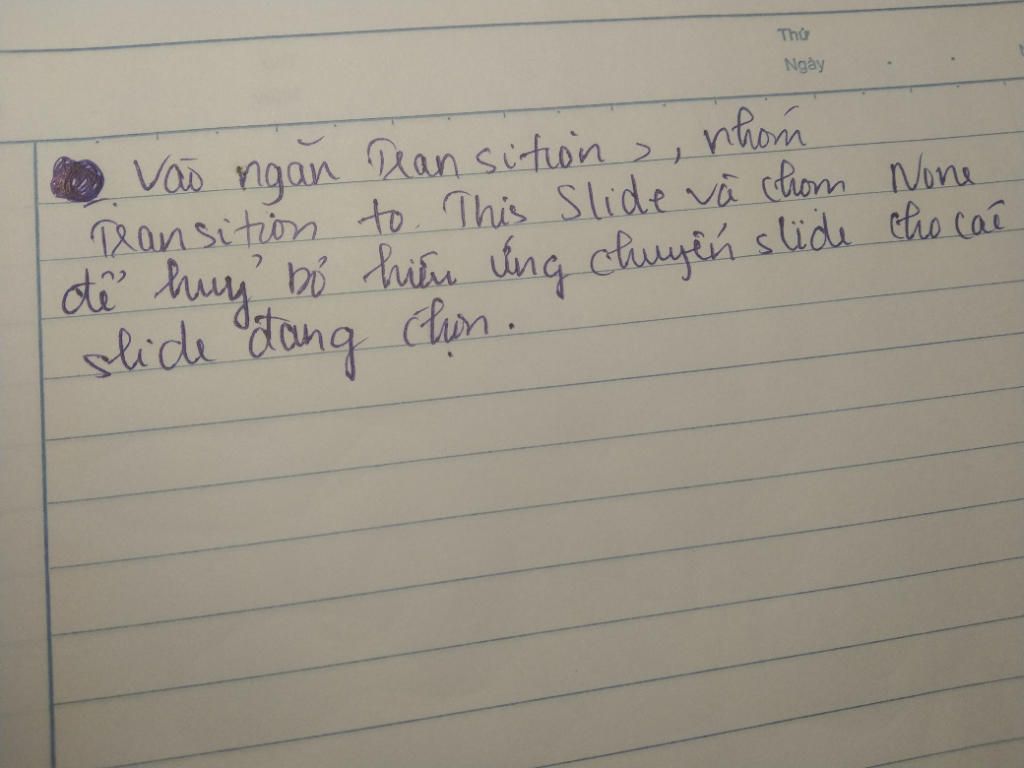 Thứ
Ngày
Vào ngăn Transition >, nhóm
Transition to This Slide và chọn None
để huỷ bỏ hiệu ứng chuyển slide cho các
slide đang chọn.